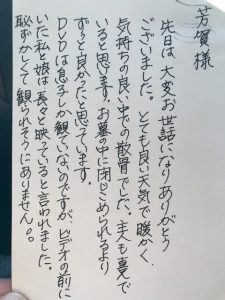 芳賀様
先日は、大変お世話になりありがとう
ございました。とても良い天気で暖かく、
気持ちの良い中での散骨でした。主人も喜んで
いると思います。お墓の中に閉じこめられるより
ずぅと良かったと思っています。
DVDは息子しか観ていないのですが、ビデオの前に
いた私と娘は長々と映っていると言われました。
恥ずかしくて観られそうにありません。